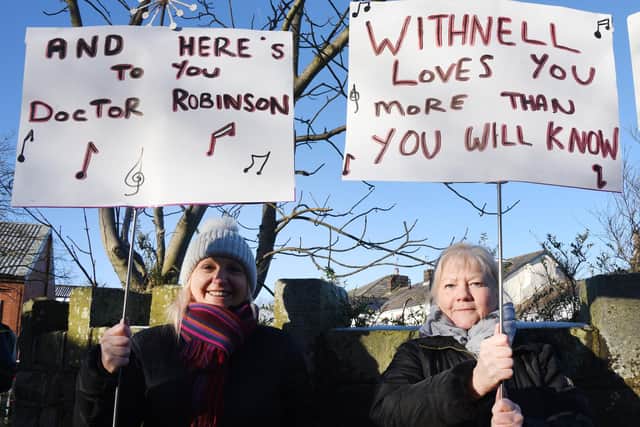 AND HERE'S
TO YOU
DOCTOR ROBINSON
WITHNELL
LOVES YOU
MORE THAN
YOU WILL KNOW